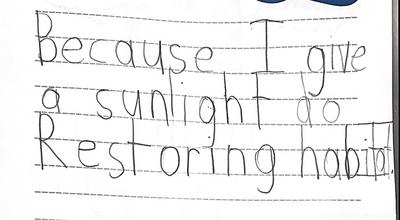 Because I give
a sunlight do
Restoring habitat.